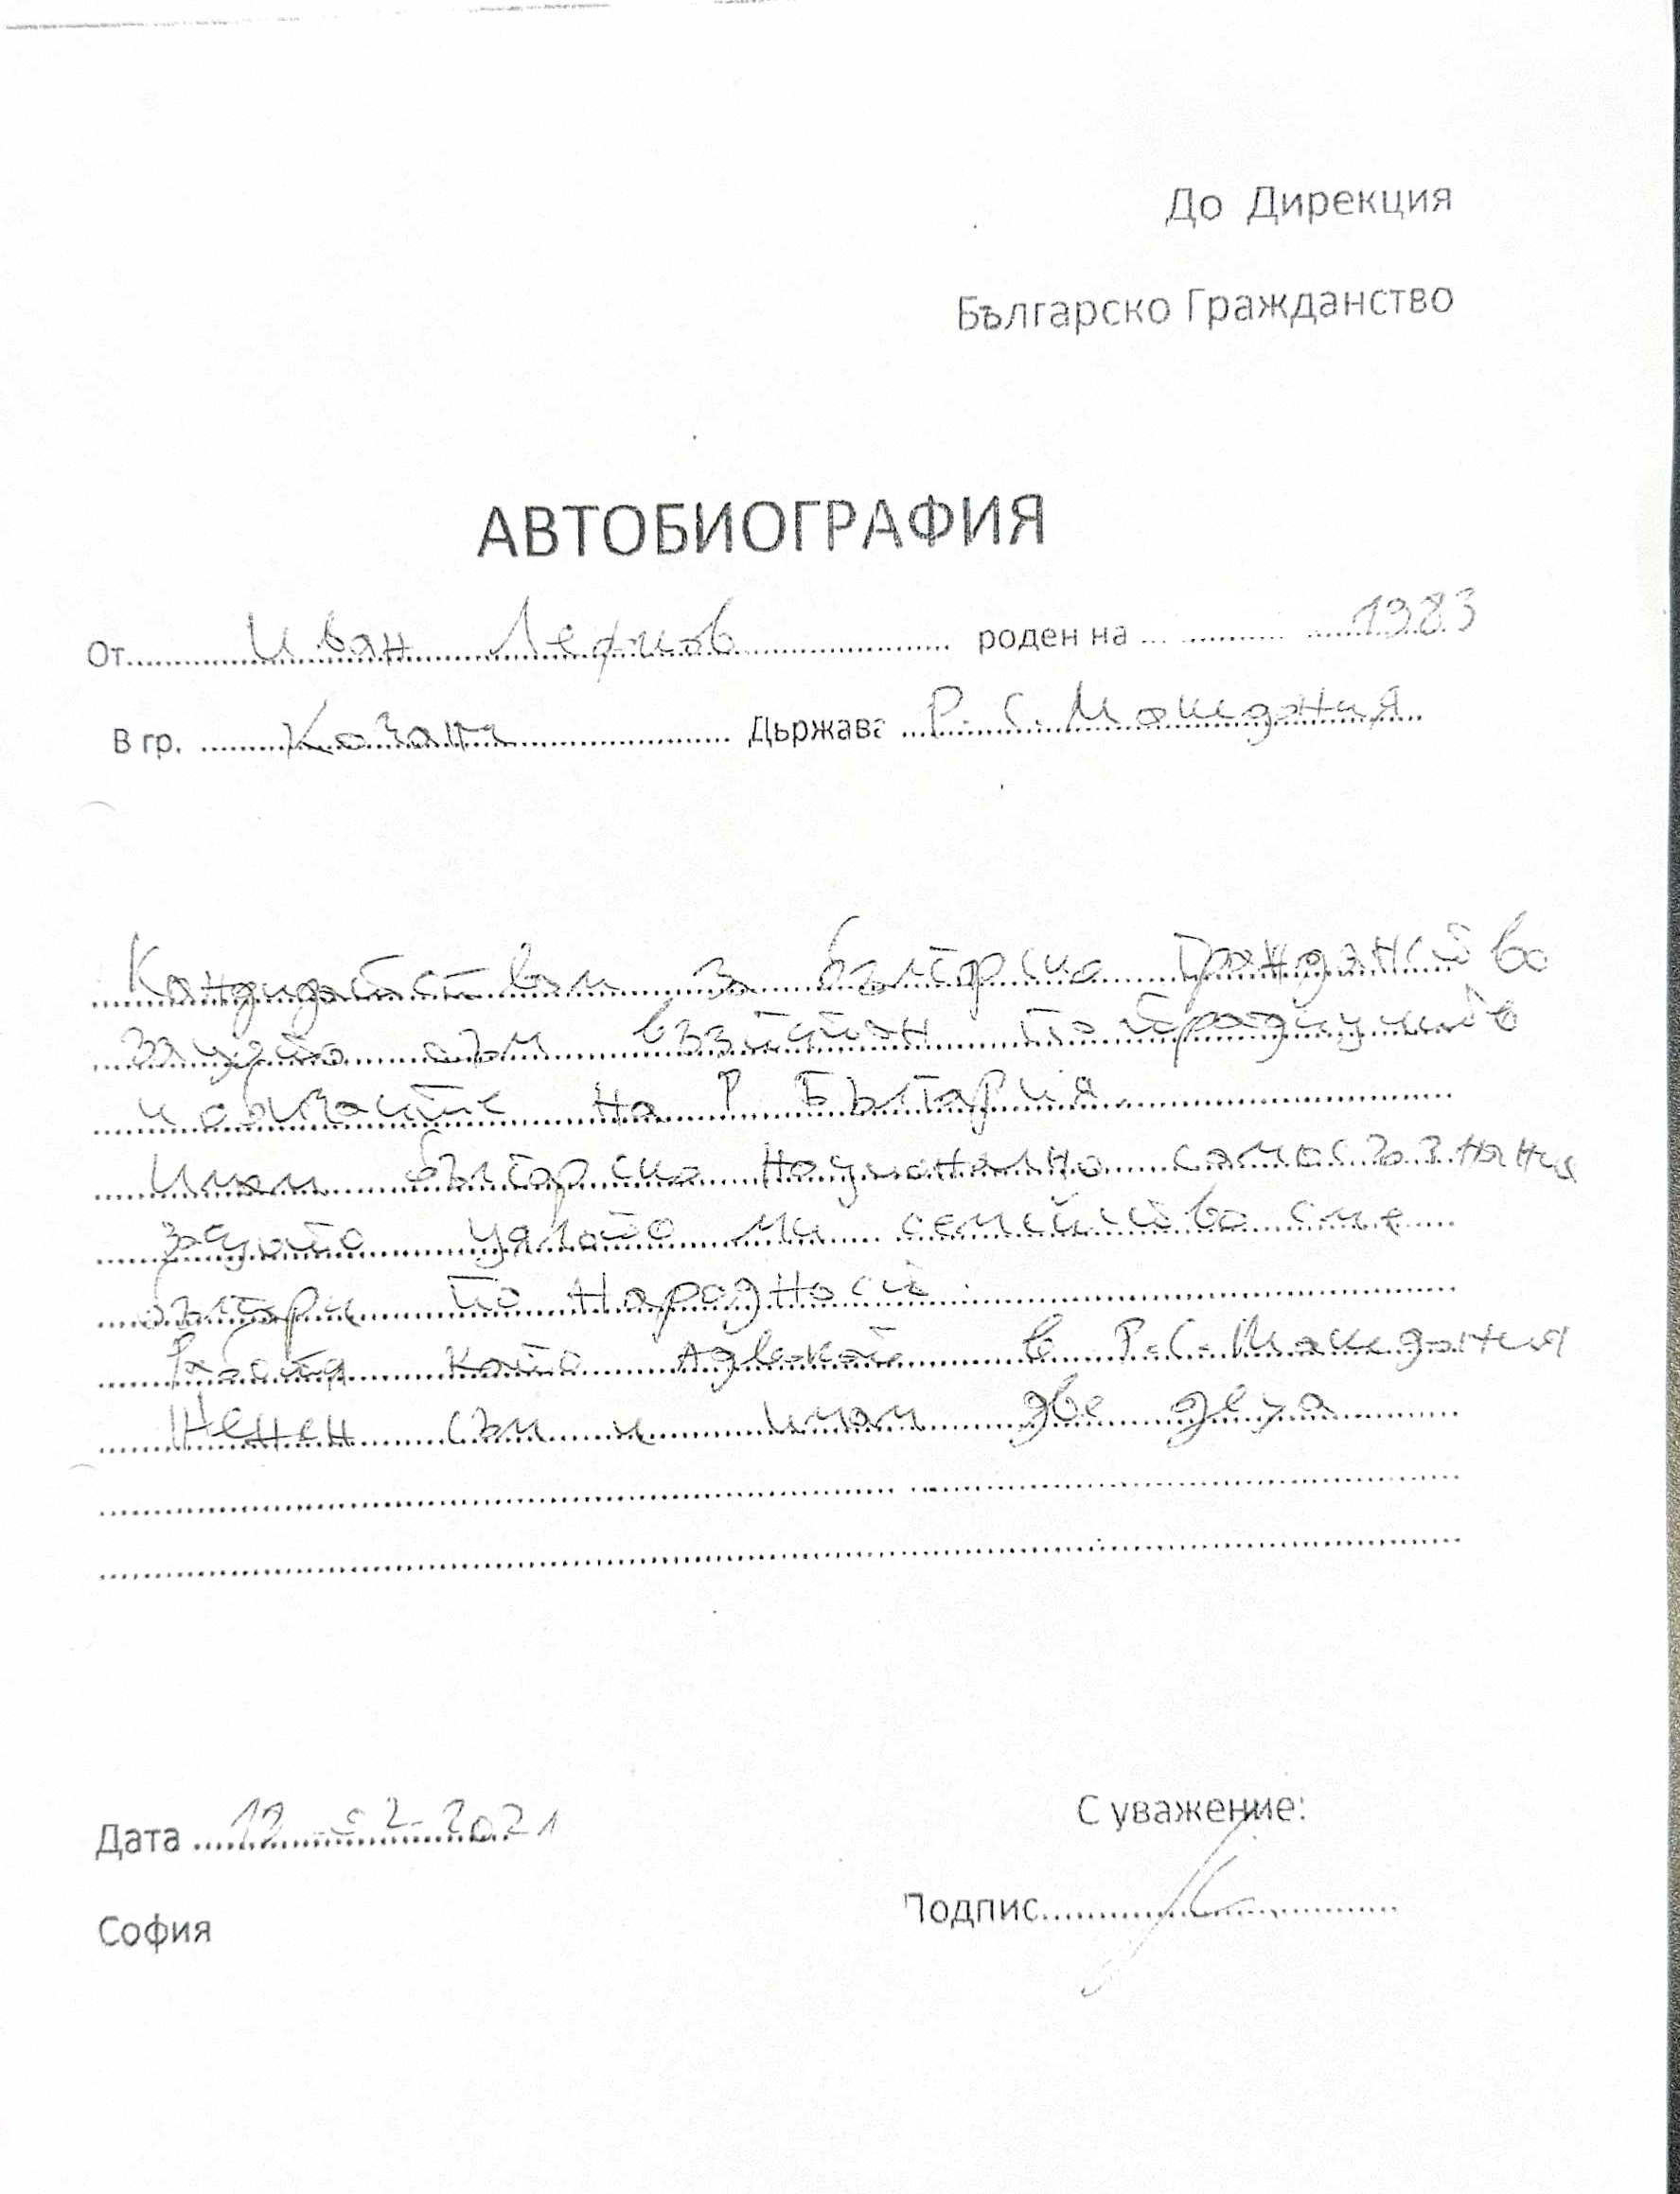 До Дирекция
Българско Гражданство
АВТОБИОГРАФИЯ
От Иван роден на 1983
В гр. Държава Р. С. Македония
Кандидатствам за българско гражданство
защото съм възпитан по традициите
и обичаите на Р България
Имам българско национално самосъзнание
защото цялото ми семейство сме
българи по народност.
Работя като Адвокат в Р. С. Македония
Женен съм и имам две деца
Дата 12-02-2021
С уважение:
Подпис
София